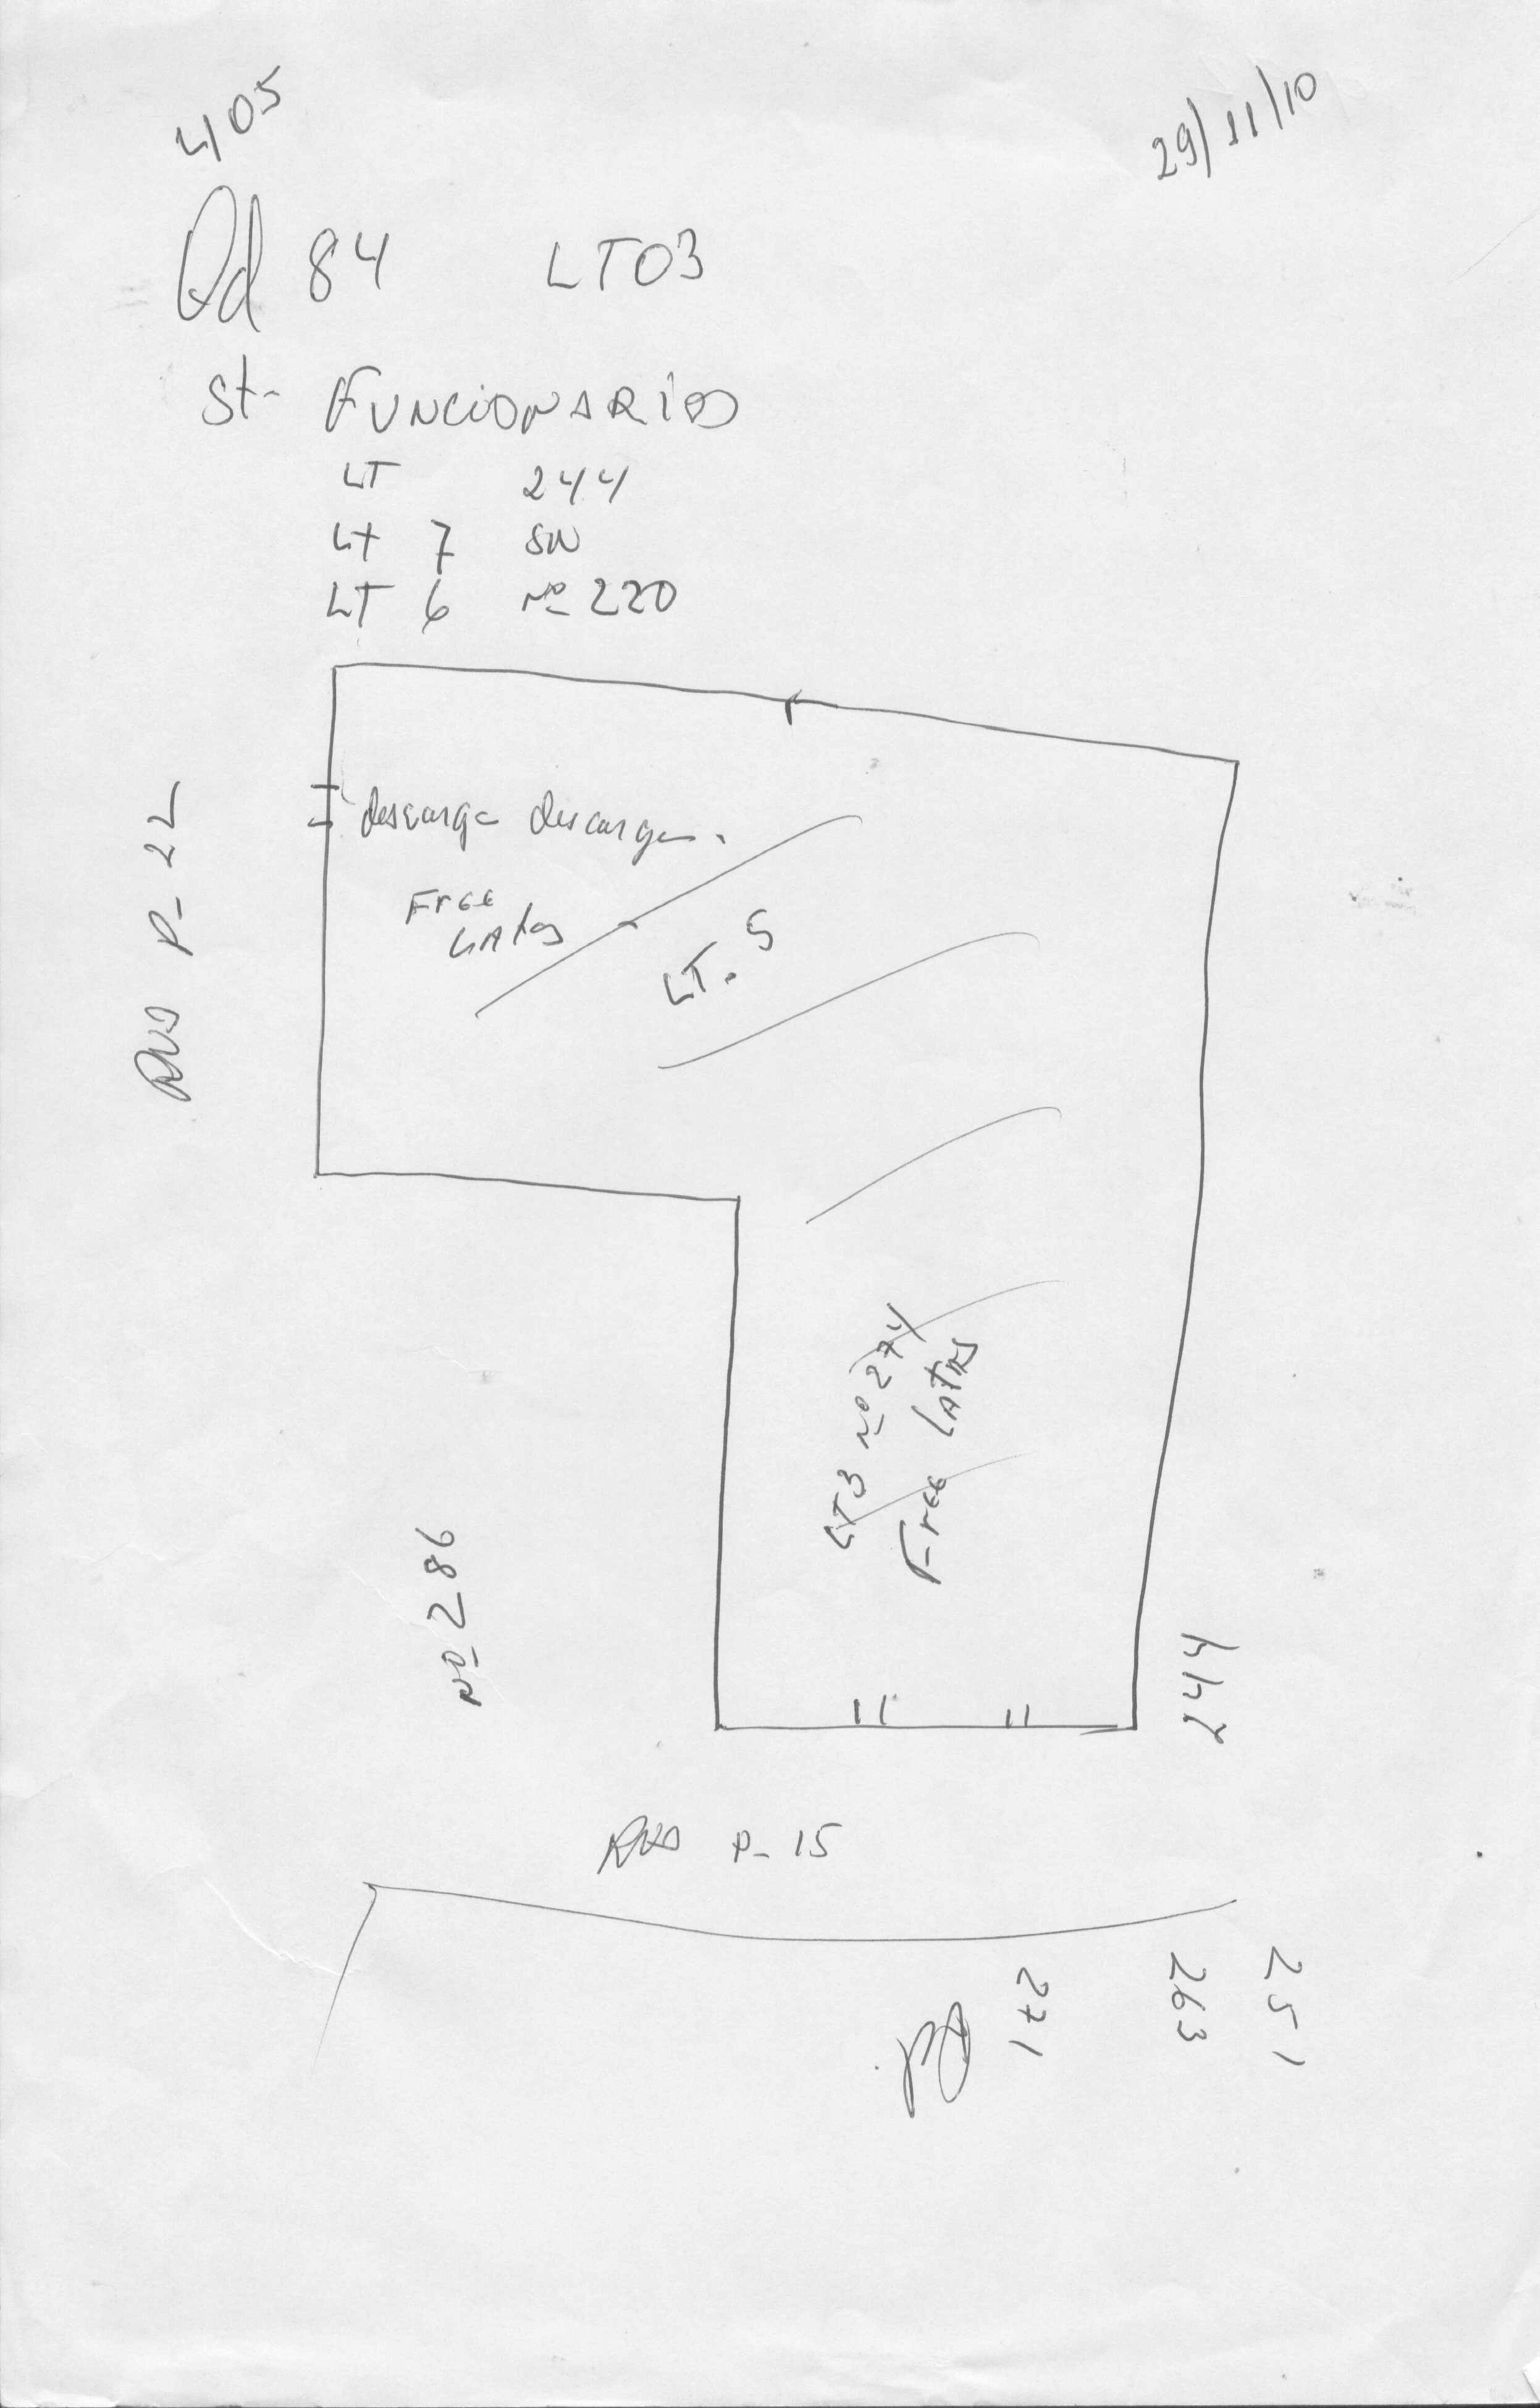 405
29/11/10
Qd 84 LT03
St- FUNCIONARIOS
LT 244
LT 7 SN
LT 6 Nº 220
RUA P-22
descarga descarga.
Free
LT. 5
LT3 Nº 274
Free
Nº 286
244
RUA P-15
271
263
251